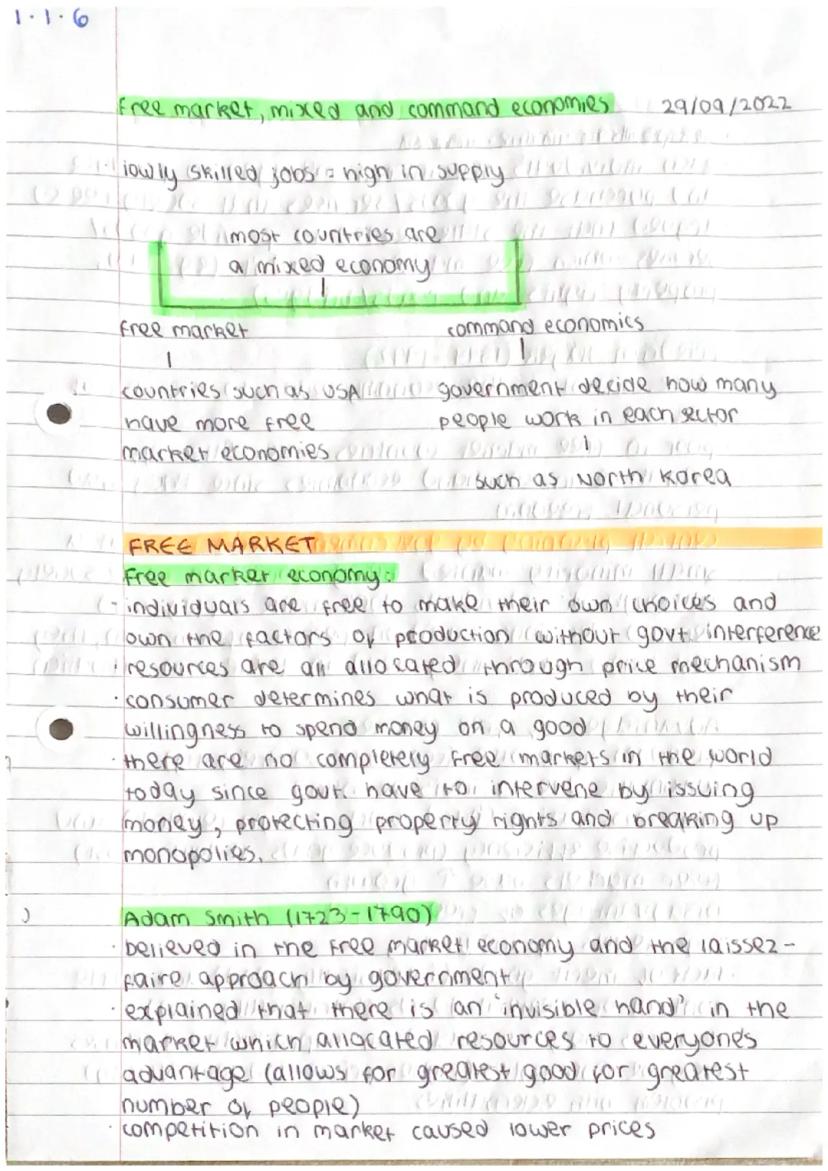 1.1.6
free market, mixed and command economies 29/09/2022
lowly skilled jobs = high in supply
most countries are
a mixed economy
free market command economics
countries such as USA government decide how many
have more free people work in each sector
market economies
such as North Korea
FREE MARKET
free market economy:
- individuals are free to make their own choices and
own the factors of production without govt interference
· resources are all allocated through price mechanism
· consumer determines what is produced by their
willingness to spend money on a good
· there are no completely free markets in the world
today since govt have to intervene by issuing
money, protecting property rights and breaking up
monopolies.
Adam Smith (1723-1790)
· believed in the free market economy and the laissez-
faire approach by government
· explained that there is an 'invisible hand' in the
market which allocated resources to everyones
advantage (allows for greatest good for greatest
number of people)
· competition in market caused lower prices